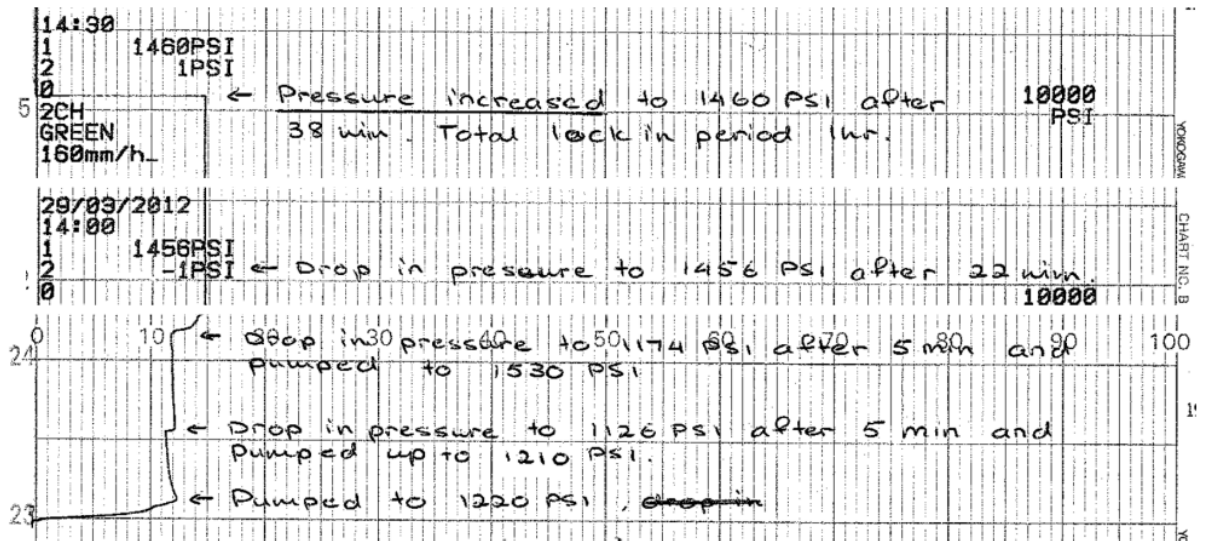 14:30
1 1460PSI
2 1PSI
0 10000
← Pressure increased to 1460 PSI after
5 2CH PSI
GREEN 38 min. Total lock in period 1hr.
160mm/h_
29/03/2012
14:00
1 1456PSI
2 -1PSI ← Drop in pressure to 1456 PSI after 22 min.
0 10000
CHART NO. B
0 10 30 40 50 70 80 90 100
← Drop in pressure to 1174 PSI, after 5 min and
24 pumped to 1530 PSI
← Drop in pressure to 1126 PSI after 5 min and
Pumped up to 1210 PSI.
← Pumped to 1220 PSI. drop in
23